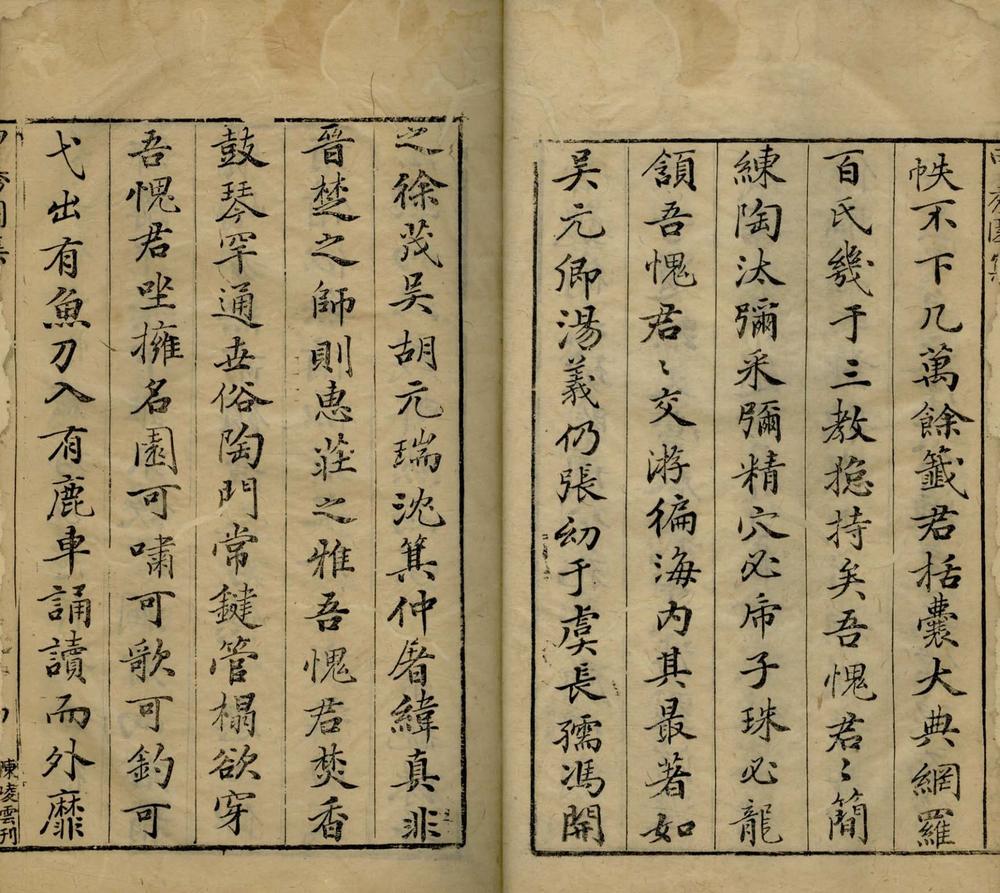 帙不下几萬餘籤君括囊大典網羅
百氏幾于三教揔持矣吾愧君〻簡
練陶汰彌采彌精穴必帝子珠必龍
頷吾愧君〻交游徧海內其最著如
吳元卿湯義仍張幼于虞長孺馮開
之徐茂吳胡元瑞沈箕仲屠緯真非
晉楚之師則惠莊之雅吾愧君焚香
鼓琴罕通世俗陶門常鍵管榻欲穿
吾愧君坐擁名園可嘯可歌可釣可
弋出有魚刀入有鹿車誦讀而外靡
陳凌雲刊